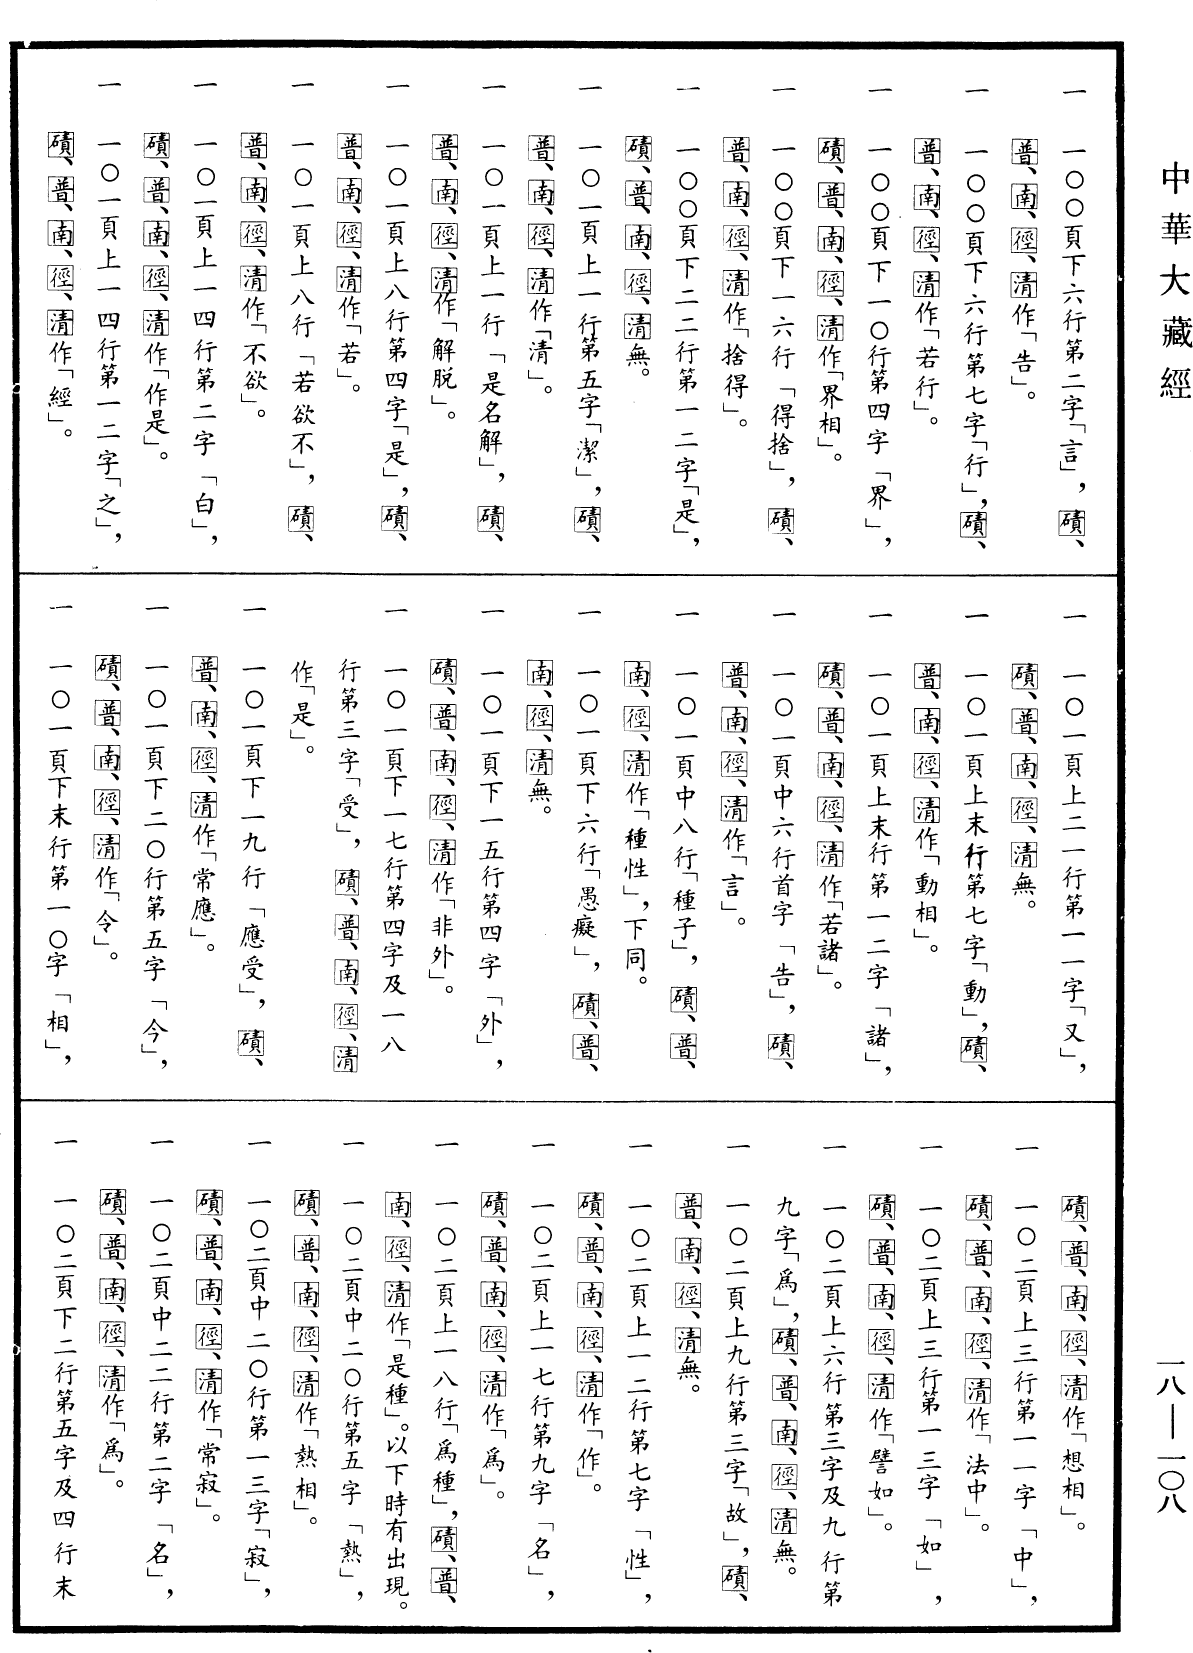 中華大藏經
一 一〇〇頁下六行第二字「言」，磧、
普、南、徑、清作「告」。
一 一〇〇頁下六行第七字「行」，磧、
普、南、徑、清作「若行」。
一 一〇〇頁下一〇行第四字「界」，
磧、普、南、徑、清作「界相」。
一 一〇〇頁下一六行「得捨」，磧、
普、南、徑、清作「捨得」。
一 一〇〇頁下二二行第一二字「是」，
磧、普、南、徑、清無。
一 一〇一頁上一行第五字「潔」，磧、
普、南、徑、清作「清」。
一 一〇一頁上一行「是名解」，磧、
普、南、徑、清作「解脫」。
一 一〇一頁上八行第四字「是」，磧、
普、南、徑、清作「若」。
一 一〇一頁上八行「若欲不」，磧、
普、南、徑、清作「不欲」。
一 一〇一頁上一四行第二字「白」，
磧、普、南、徑、清作「作是」。
一 一〇一頁上一四行第一二字「之」，
磧、普、南、徑、清作「經」。
一 一〇一頁上二一行第一一字「又」，
磧、普、南、徑、清無。
一 一〇一頁上末行第七字「動」，磧、
普、南、徑、清作「動相」。
一 一〇一頁上末行第一二字「諸」，
磧、普、南、徑、清作「若諸」。
一 一〇一頁中六行首字「告」，磧、
普、南、徑、清作「言」。
一 一〇一頁中八行「種子」，磧、普、
南、徑、清作「種性」，下同。
一 一〇一頁下六行「愚癡」，磧、普、
南、徑、清無。
一 一〇一頁下一五行第四字「外」，
磧、普、南、徑、清作「非外」。
一 一〇一頁下一七行第四字及一八
行第三字「受」，磧、普、南、徑、清
作「是」。
一 一〇一頁下一九行「應受」，磧、
普、南、徑、清作「常應」。
一 一〇一頁下二〇行第五字「今」，
磧、普、南、徑、清作「令」。
一 一〇一頁下末行第一〇字「相」，
磧、普、南、徑、清作「想相」。
一 一〇二頁上三行第一一字「中」，
磧、普、南、徑、清作「法中」。
一 一〇二頁上三行第一三字「如」，
磧、普、南、徑、清作「譬如」。
一 一〇二頁上六行第三字及九行第
九字「爲」，磧、普、南、徑、清無。
一 一〇二頁上九行第三字「故」，磧、
普、南、徑、清無。
一 一〇二頁上一二行第七字「性」，
磧、普、南、徑、清作「作」。
一 一〇二頁上一七行第九字「名」，
磧、普、南、徑、清作「爲」。
一 一〇二頁上一八行「爲種」，磧、普、
南、徑、清作「是種」。以下時有出現。
一 一〇二頁中二〇行第五字「熱」，
磧、普、南、徑、清作「熱相」。
一 一〇二頁中二〇行第一三字「寂」，
磧、普、南、徑、清作「常寂」。
一 一〇二頁中二二行第二字「名」，
磧、普、南、徑、清作「爲」。
一 一〇二頁下二行第五字及四行末
一八—一〇八